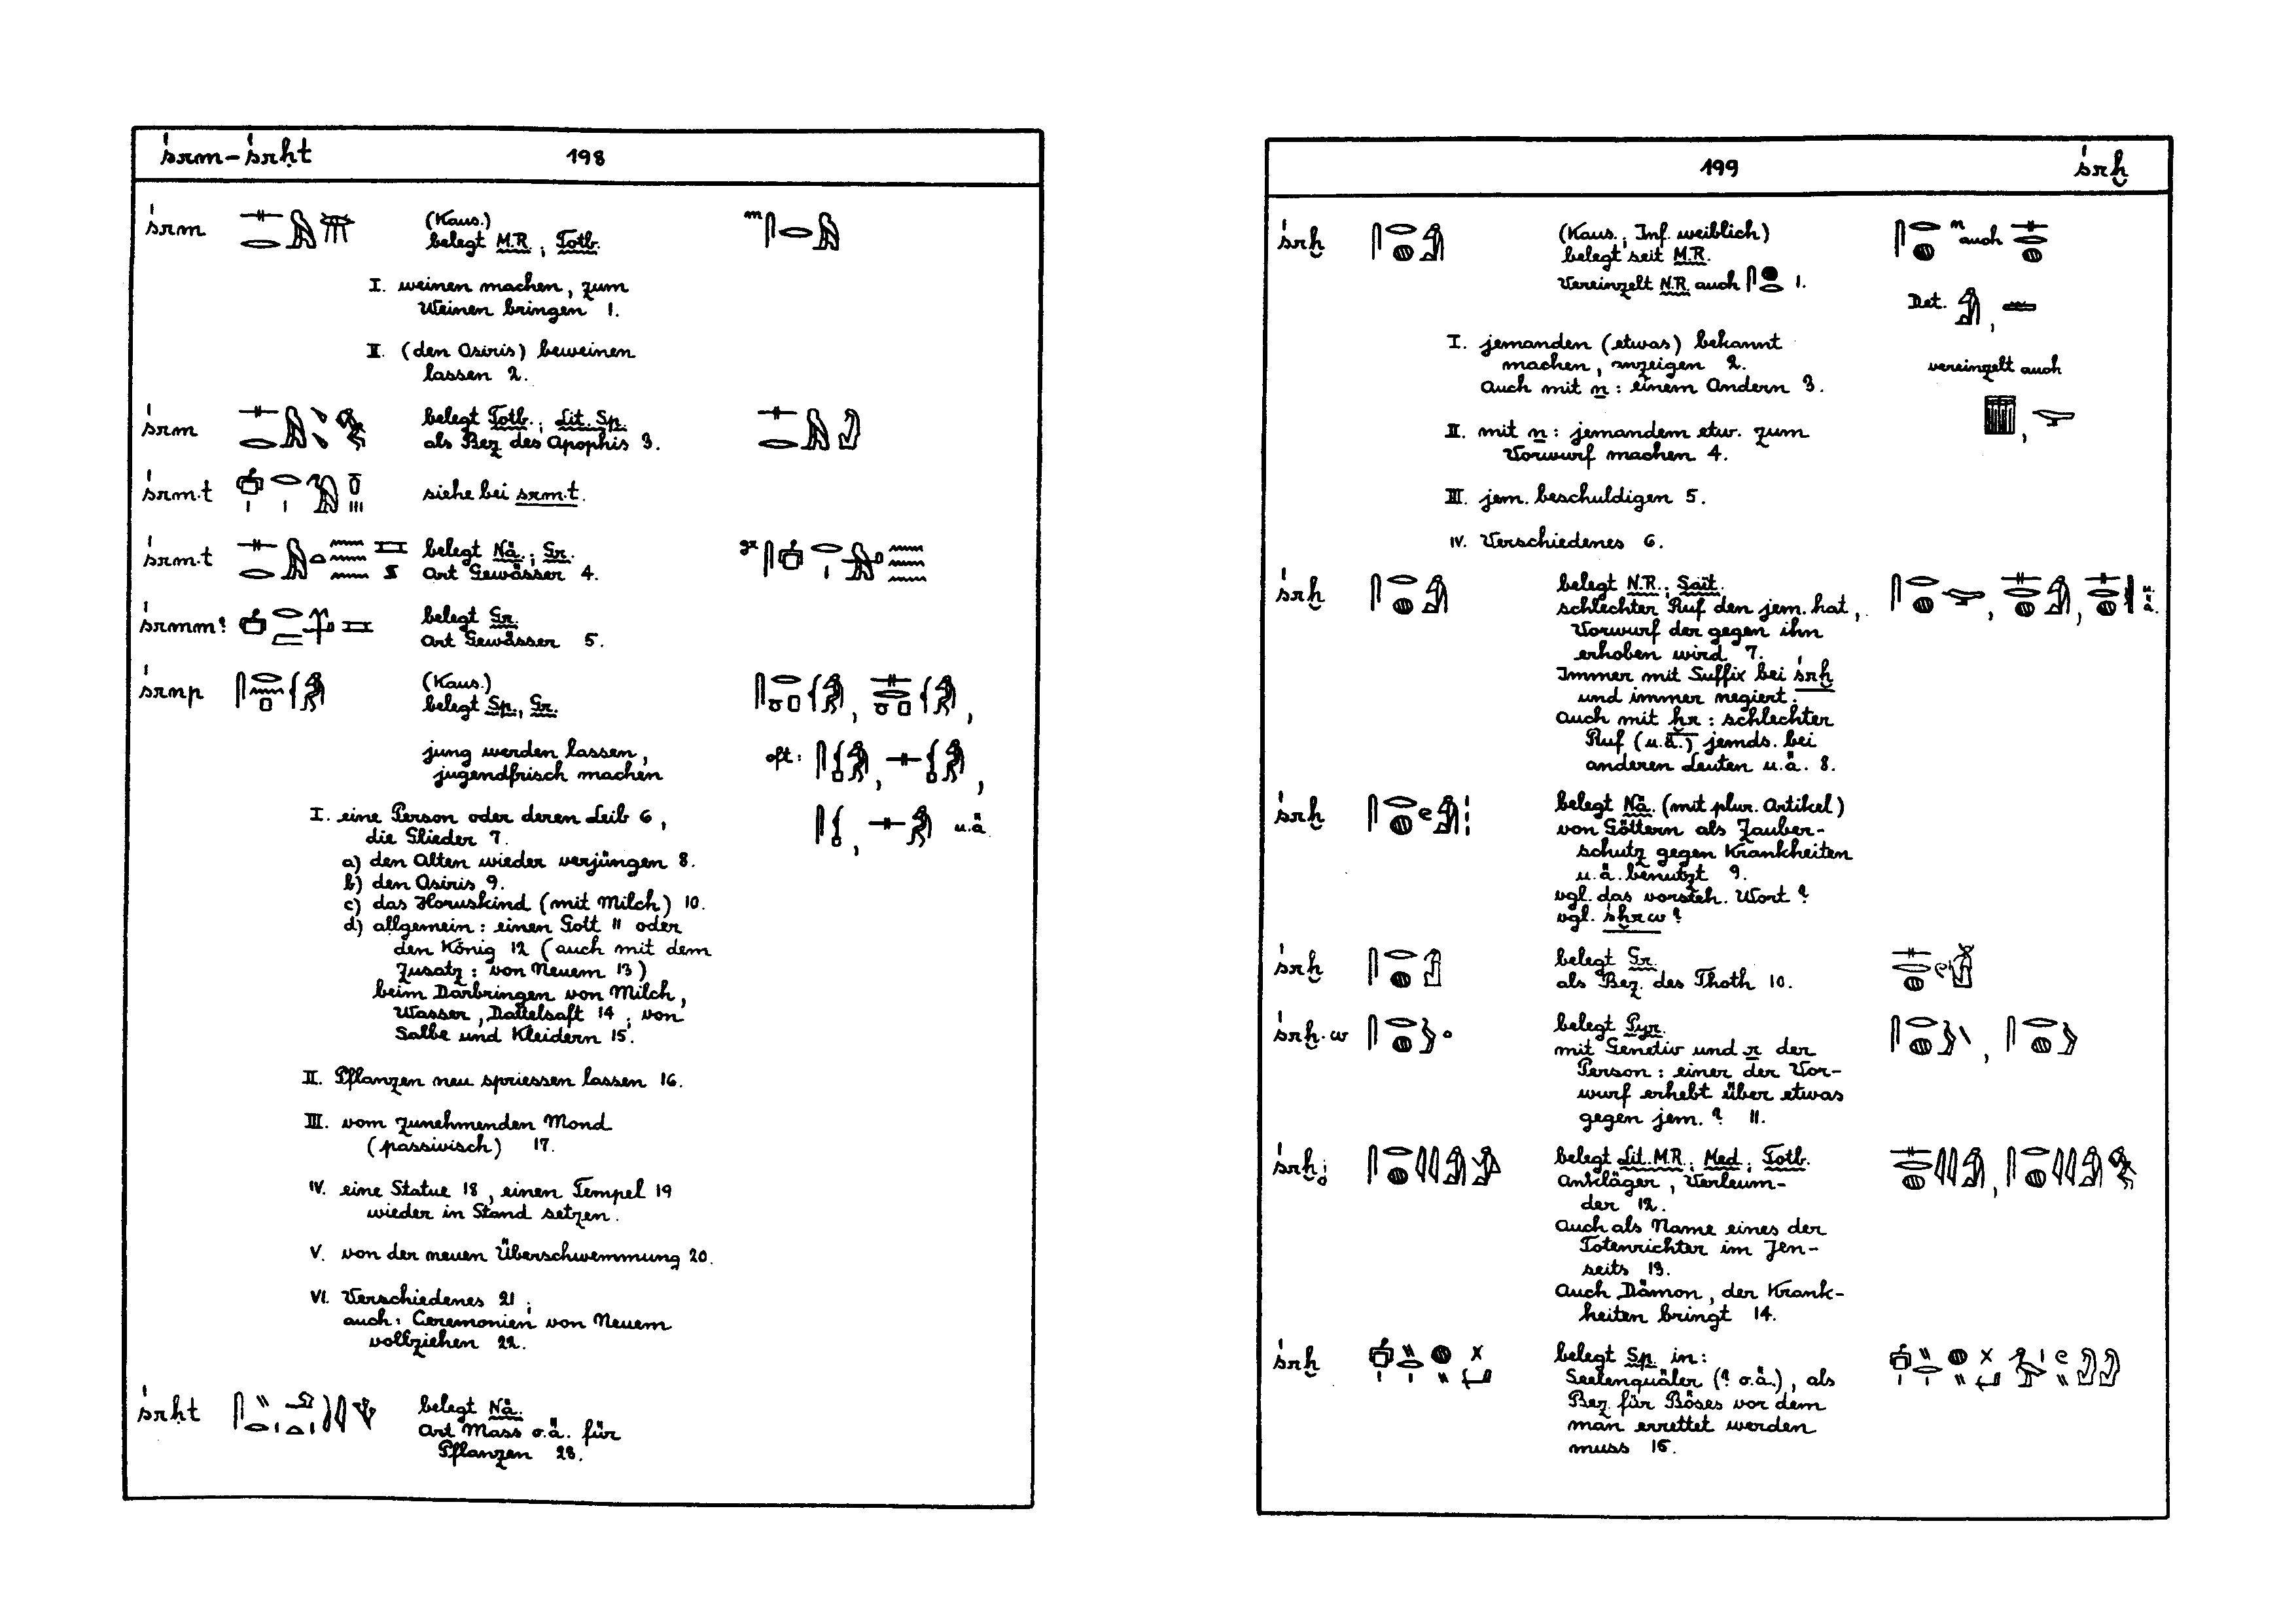 śrm–śrḥt 198
śrm (Kaus.)
belegt M.R.; Totb.
I. weinen machen, zum
Weinen bringen 1.
II. (den Osiris) beweinen
lassen 2.
śrm belegt Totb.; Lit. Sp.
als Bez des Apophis 3.
śrm.t siehe bei srm.t.
śrm.t belegt Nä.; Gr.
Art Gewässer 4.
śrmm? belegt Gr.
Art Gewässer 5.
śrnp (Kaus.)
belegt Sp., Gr.
jung werden lassen, oft:
jugendfrisch machen
I. eine Person oder deren Leib 6, u.ä.
die Glieder 7.
a) den Alten wieder verjüngen 8.
b) den Osiris 9.
c) das Horuskind (mit Milch) 10.
d) allgemein: einen Gott 11 oder
den König 12 (auch mit dem
Zusatz: von Neuem 13)
beim Darbringen von Milch,
Wasser, Dattelsaft 14; von
Salbe und Kleidern 15.
II. Pflanzen neu spriessen lassen 16.
III. vom zunehmenden Mond
(passivisch) 17.
IV. eine Statue 18, einen Tempel 19
wieder in Stand setzen.
V. von der neuen Überschwemmung 20.
VI. Verschiedenes 21;
auch: Ceremonien von Neuem
vollziehen 22.
śrḥt belegt Nä.
Art Mass o.ä. für
Pflanzen 23.
199 śrḫ
śrḫ (Kaus.; Inf. weiblich) n auch
belegt seit M.R.
Vereinzelt N.R. auch 1.
Det.
I. jemanden (etwas) bekannt
machen, anzeigen 2. vereinzelt auch
Auch mit n: einem Andern 3.
II. mit n: jemandem etw. zum
Vorwurf machen 4.
III. jem. beschuldigen 5.
IV. Verschiedenes 6.
śrḫ belegt N.R.; Sait.
schlechter Ruf den jem. hat,
Vorwurf der gegen ihn
erhoben wird 7.
Immer mit Suffix bei śrḫ
und immer negiert.
Auch mit ḫr: schlechter
Ruf (u.ä.) jemds. bei
anderen Leuten u.ä. 8.
śrḫ belegt Nä. (mit plur. Artikel)
von Göttern als Zauber-
schutz gegen Krankheiten
u.ä. benutzt 9.
vgl. das vorsteh. Wort?
vgl. śḫrw?
śrḫ belegt Gr.
als Bez. des Thoth 10.
śrḫ.w belegt Pyr.
mit Genetiv und r der
Person: einer der Vor-
wurf erhebt über etwas
gegen jem.? 11.
śrḫj belegt Lit. M.R.; Med.; Totb.
Ankläger, Verleum-
der 12.
Auch als Name eines der
Totenrichter im Jen-
seits 13.
Auch Dämon, der Krank-
heiten bringt 14.
śrḫ belegt Sp. in:
Seelenquäler (? o.ä.), als
Bez. für Böses vor dem
man errettet werden
muss 15.